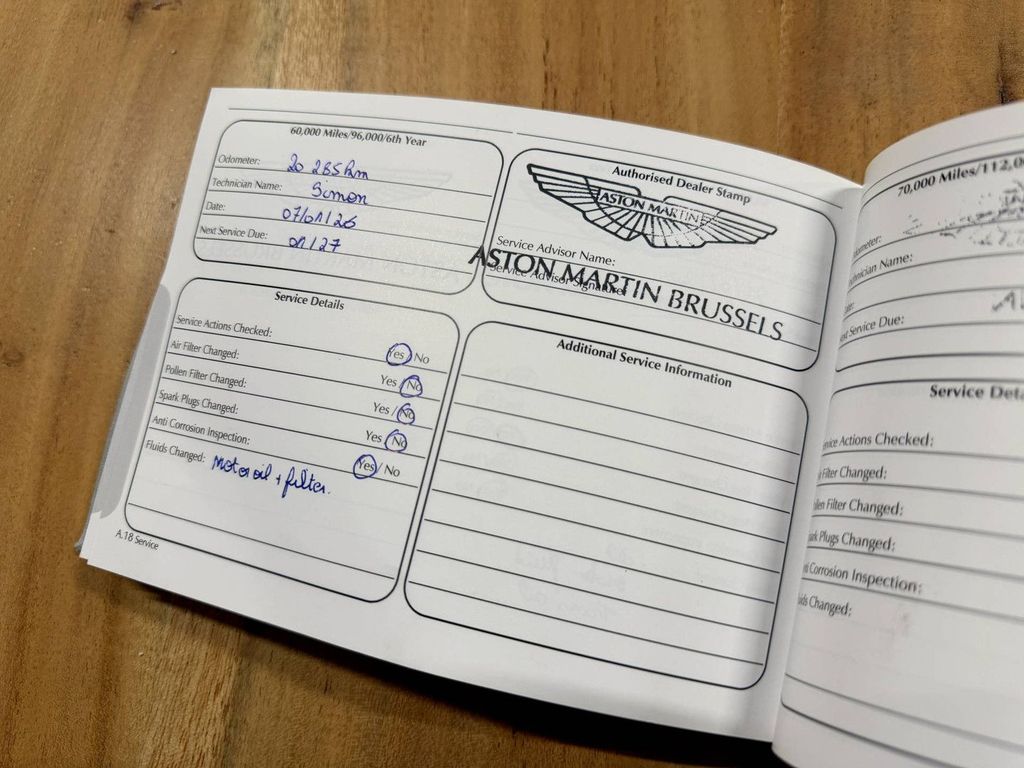 60,000 Miles/96,000/6th Year
Odometer: 20 285 km
Technician Name: Simon
Date: 07/01/26
Next Service Due: 01/27
Authorised Dealer Stamp
ASTON MARTIN
Service Advisor Name:
Service Advisor Signature:
ASTON MARTIN BRUSSELS
Service Details
Service Actions Checked: Yes / No
Air Filter Changed: Yes / No
Pollen Filter Changed: Yes / No
Spark Plugs Changed: Yes / No
Anti Corrosion Inspection: Yes / No
Fluids Changed: Motor oil + filter.
Additional Service Information
A.18 Service
70,000 Miles/112,0
Technician Name:
Service Due:
Service Deta
Actions Checked:
Filter Changed:
Filter Changed:
Plugs Changed:
Corrosion Inspection:
Changed: